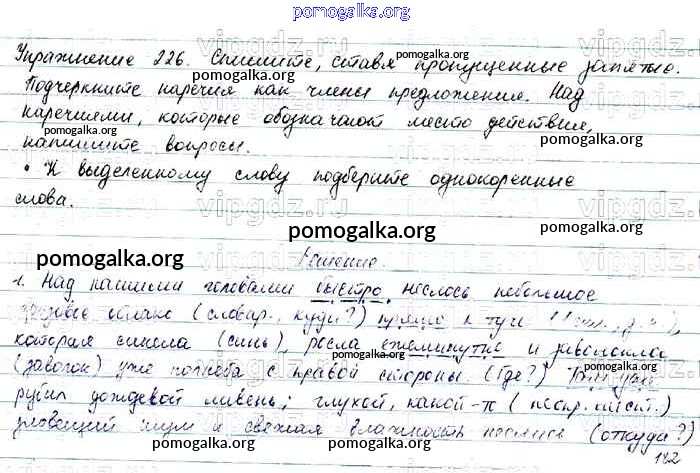 pomogalka.org
Упражнение 226. Спишите, ставя пропущенные запятые.
Подчеркните наречия как члены предложения. Над
наречиями, которые обозначают место действия,
напишите вопросы.
• К выделенному слову подберите однокоренные
слова.
Решение.
1. Над нашими головами быстро неслось небольшое
облако (словар., куда?) прямо к туче
которая синела (синь), росла ежеминутно и заволокла
(заволок) уже полнеба с правой стороны. (Где?) Там уже
рубил дождевой ливень; глухой, какой-то
зловещий шум и свежая влажность неслись (откуда?)
142